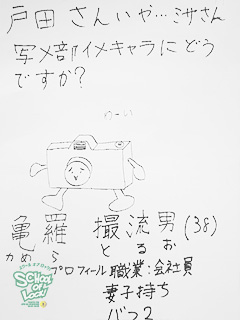 戸田さんいや…ミサさん
写メ部イメキャラにどう
ですか?
わーい
亀羅 撮流男(38)
かめら とるお
プロフィール 職業:会社員
妻子持ち
バツ2
SCHOOL OF LOCK!